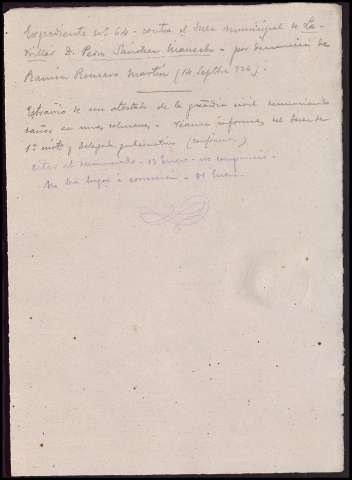 Expediente nº 64 - contra el Juez municipal de La-
drillar D. Pedro Sánchez Mancebo - por denuncia de
Ramón Romero Martín (14 Septbre 924).
Extravío de un atestado de la guardia civil denunciando
daños en unas colmenas - informes del Juez de
1ª instª y Delegado gubernativo (conformes)
citar al denunciado - 15 Enero - no compareció -
No ha lugar a - 21 Enero -